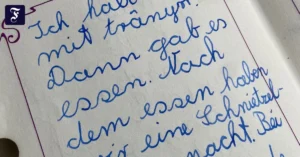 F
Ich hab
mit
Dann gab es
essen. Nach
dem essen haben
wir eine Schnitzel
macht. Bei